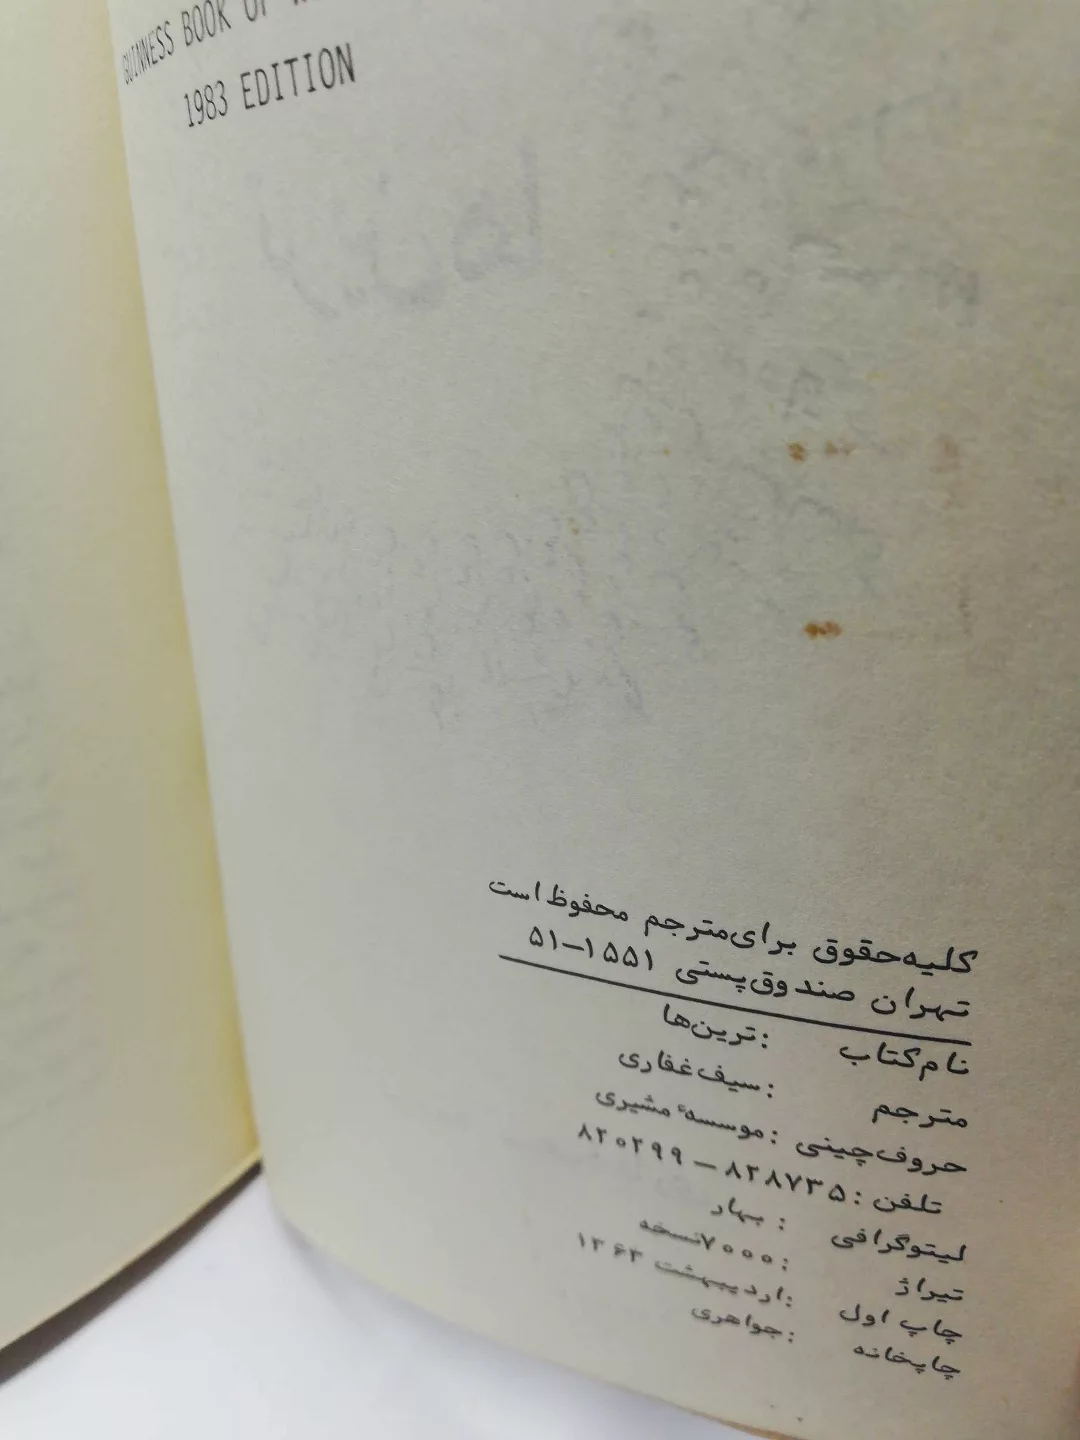 GUINNESS BOOK OF
1983 EDITION
کلیه حقوق برای مترجم محفوظ است
تهران صندوق پستی ۱۵۵۱–۵۱
نام کتاب : ترین‌ها
مترجم : سیف غفاری
حروف‌چینی : موسسهٔ مشیری
تلفن : ۸۲۸۷۳۵ – ۸۲۰۲۹۹
لیتوگرافی : بهار
تیراژ : ۷۰۰۰ نسخه
چاپ اول : اردیبهشت ۱۳۶۳
چاپخانه : جواهری